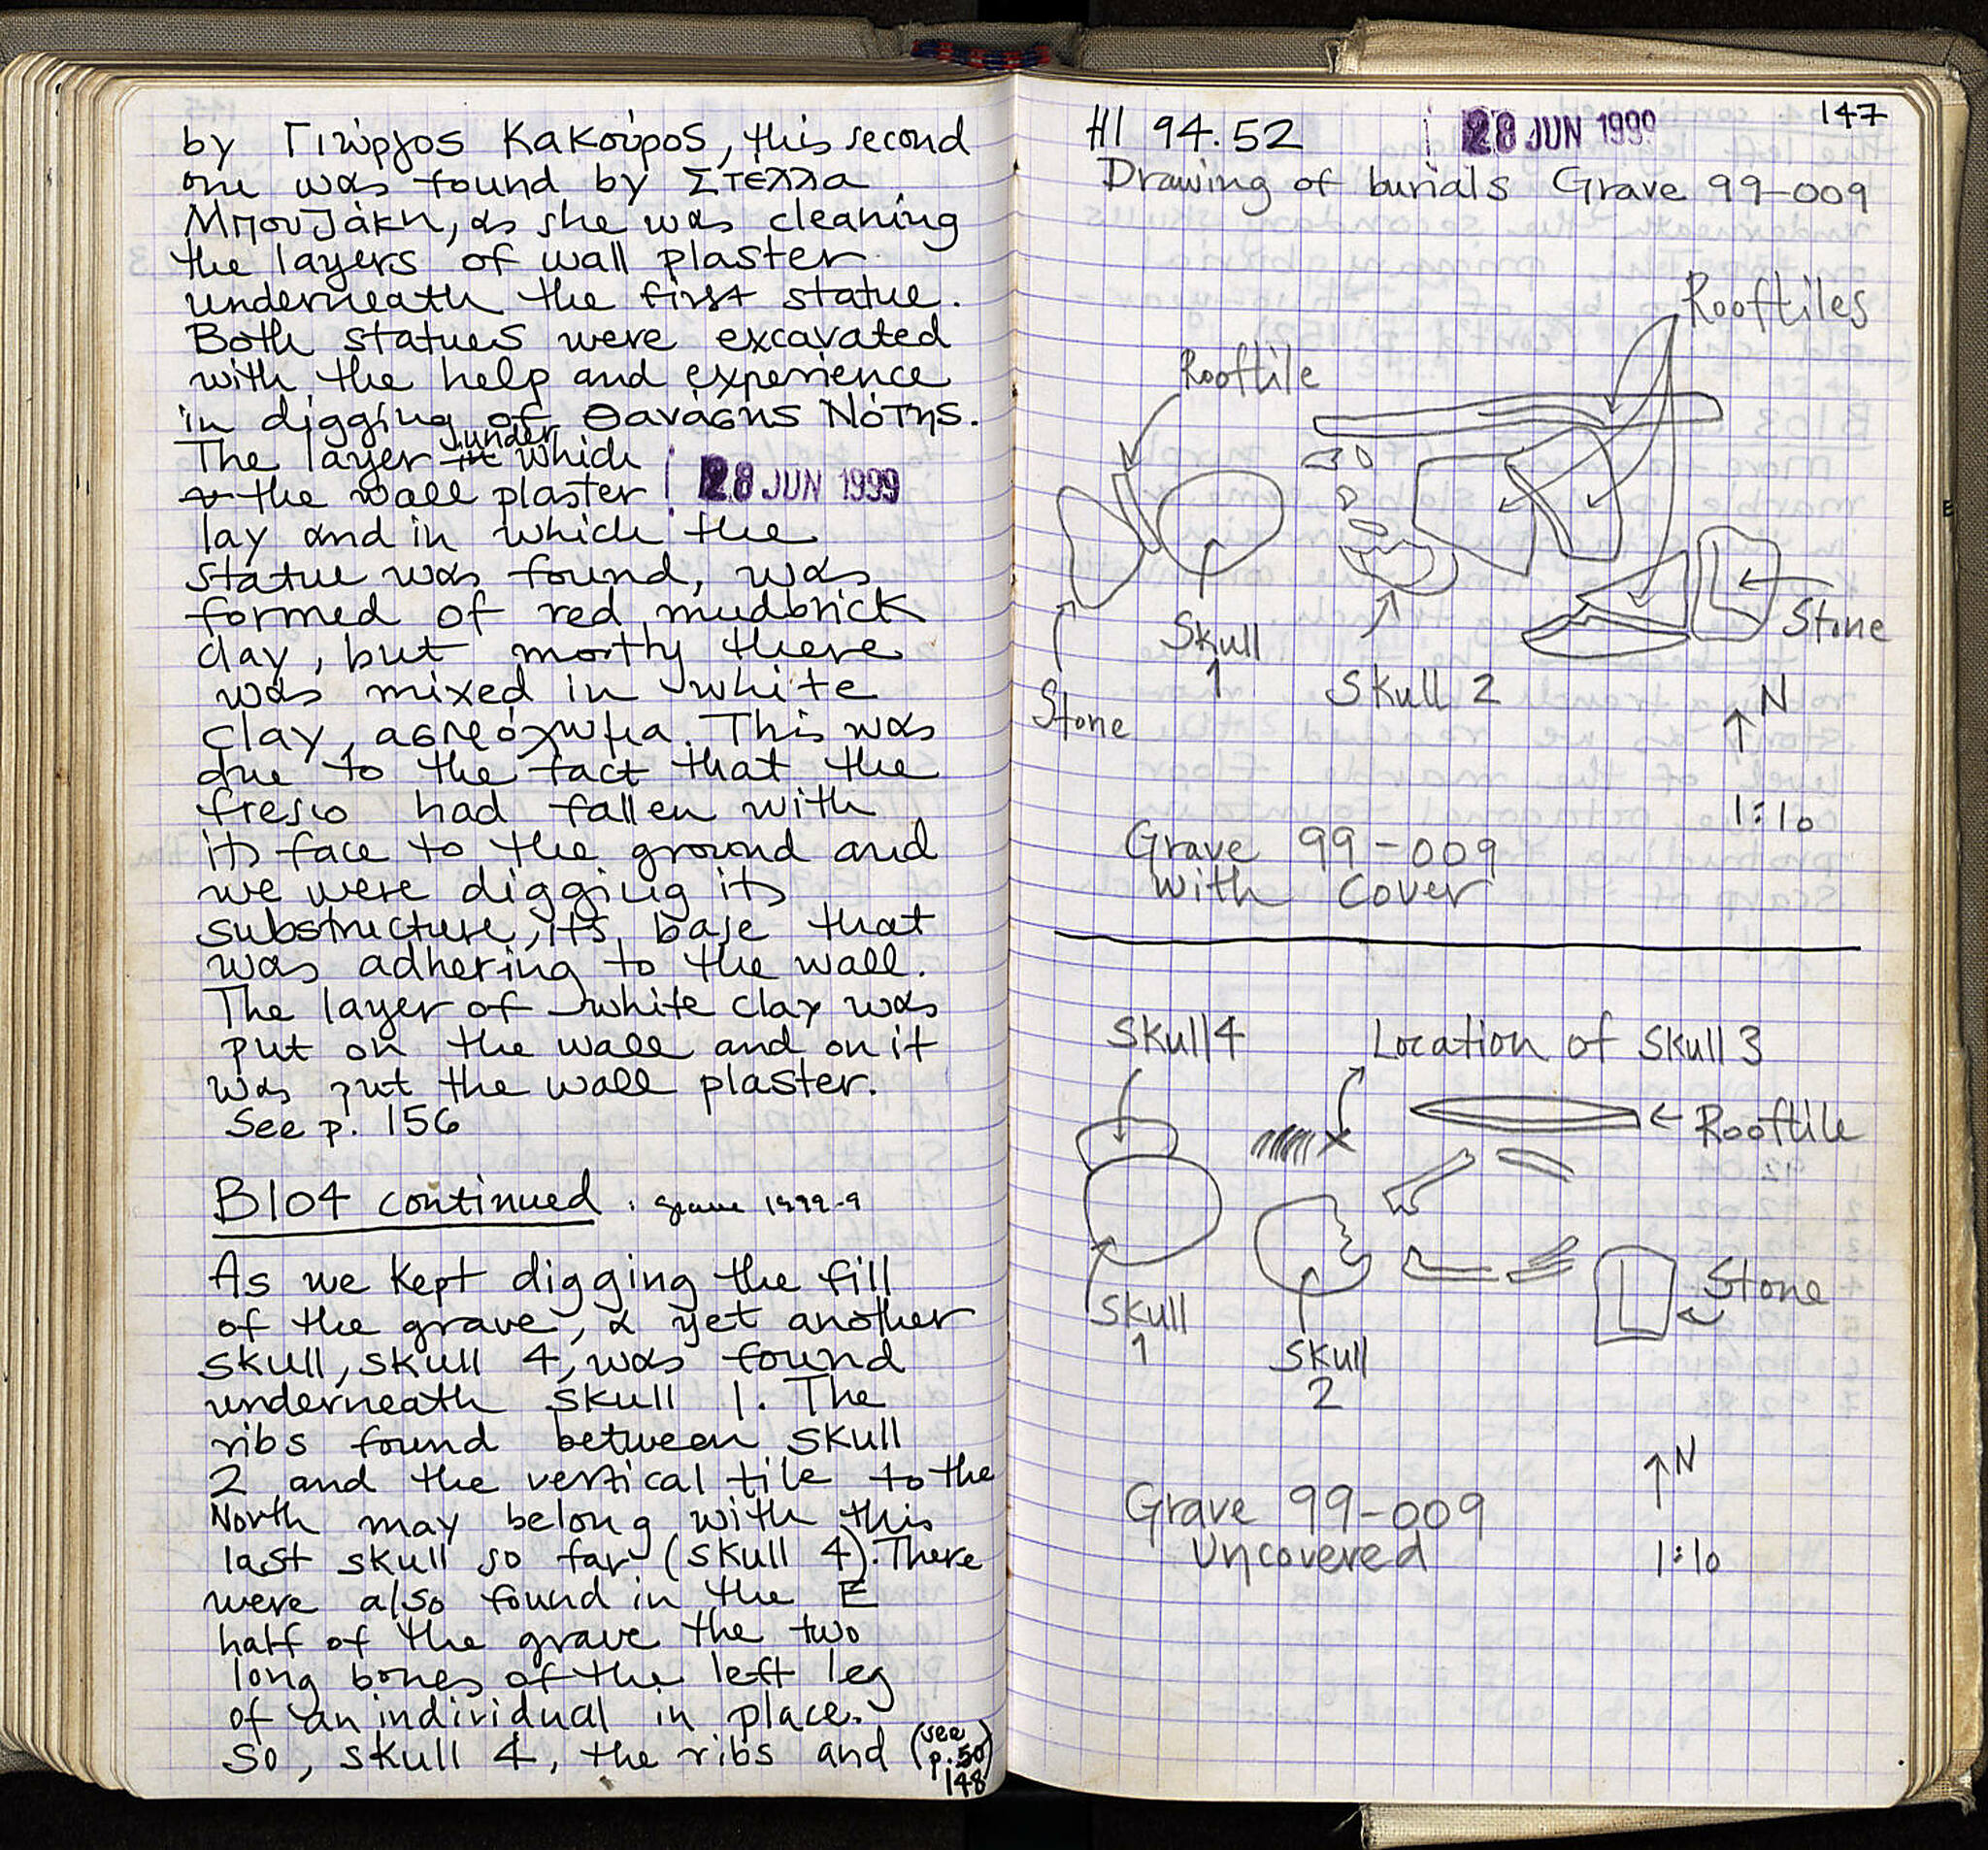 by Γιώργος Κακούρος, this second
one was found by Στελλα
Μπουζάκη, as she was cleaning
the layers of wall plaster
underneath the first statue.
Both statues were excavated
with the help and experience
in digging of Θανάσης Νότης.
The layer under which
the wall plaster
28 JUN 1999
lay and in which the
statue was found, was
formed of red mudbrick
clay, but mostly there
was mixed in white
clay, ασπρόχωμα. This was
due to the fact that the
fresco had fallen with
its face to the ground and
we were digging its
substructure, its base that
was adhering to the wall.
The layer of white clay was
put on the wall and on it
was put the wall plaster.
See p. 156
B104 continued : grave 1999-9
As we kept digging the fill
of the grave, yet another
skull, skull 4, was found
underneath skull 1. The
ribs found between skull
2 and the vertical tile to the
North may belong with this
last skull so far (skull 4). There
were also found in the E
half of the grave the two
long bones of the left leg
of an individual in place.
So, skull 4, the ribs and (see
p. 50
148
147
HI 94.52
28 JUN 1999
Drawing of burials Grave 99-009
Rooftiles
Rooftile
Skull
1
Stone
Skull 2
Stone
N
1:10
Grave 99-009
with cover
Skull 4
Location of Skull 3
Rooftile
Stone
Skull
1
Skull
2
N
Grave 99-009
Uncovered
1:10